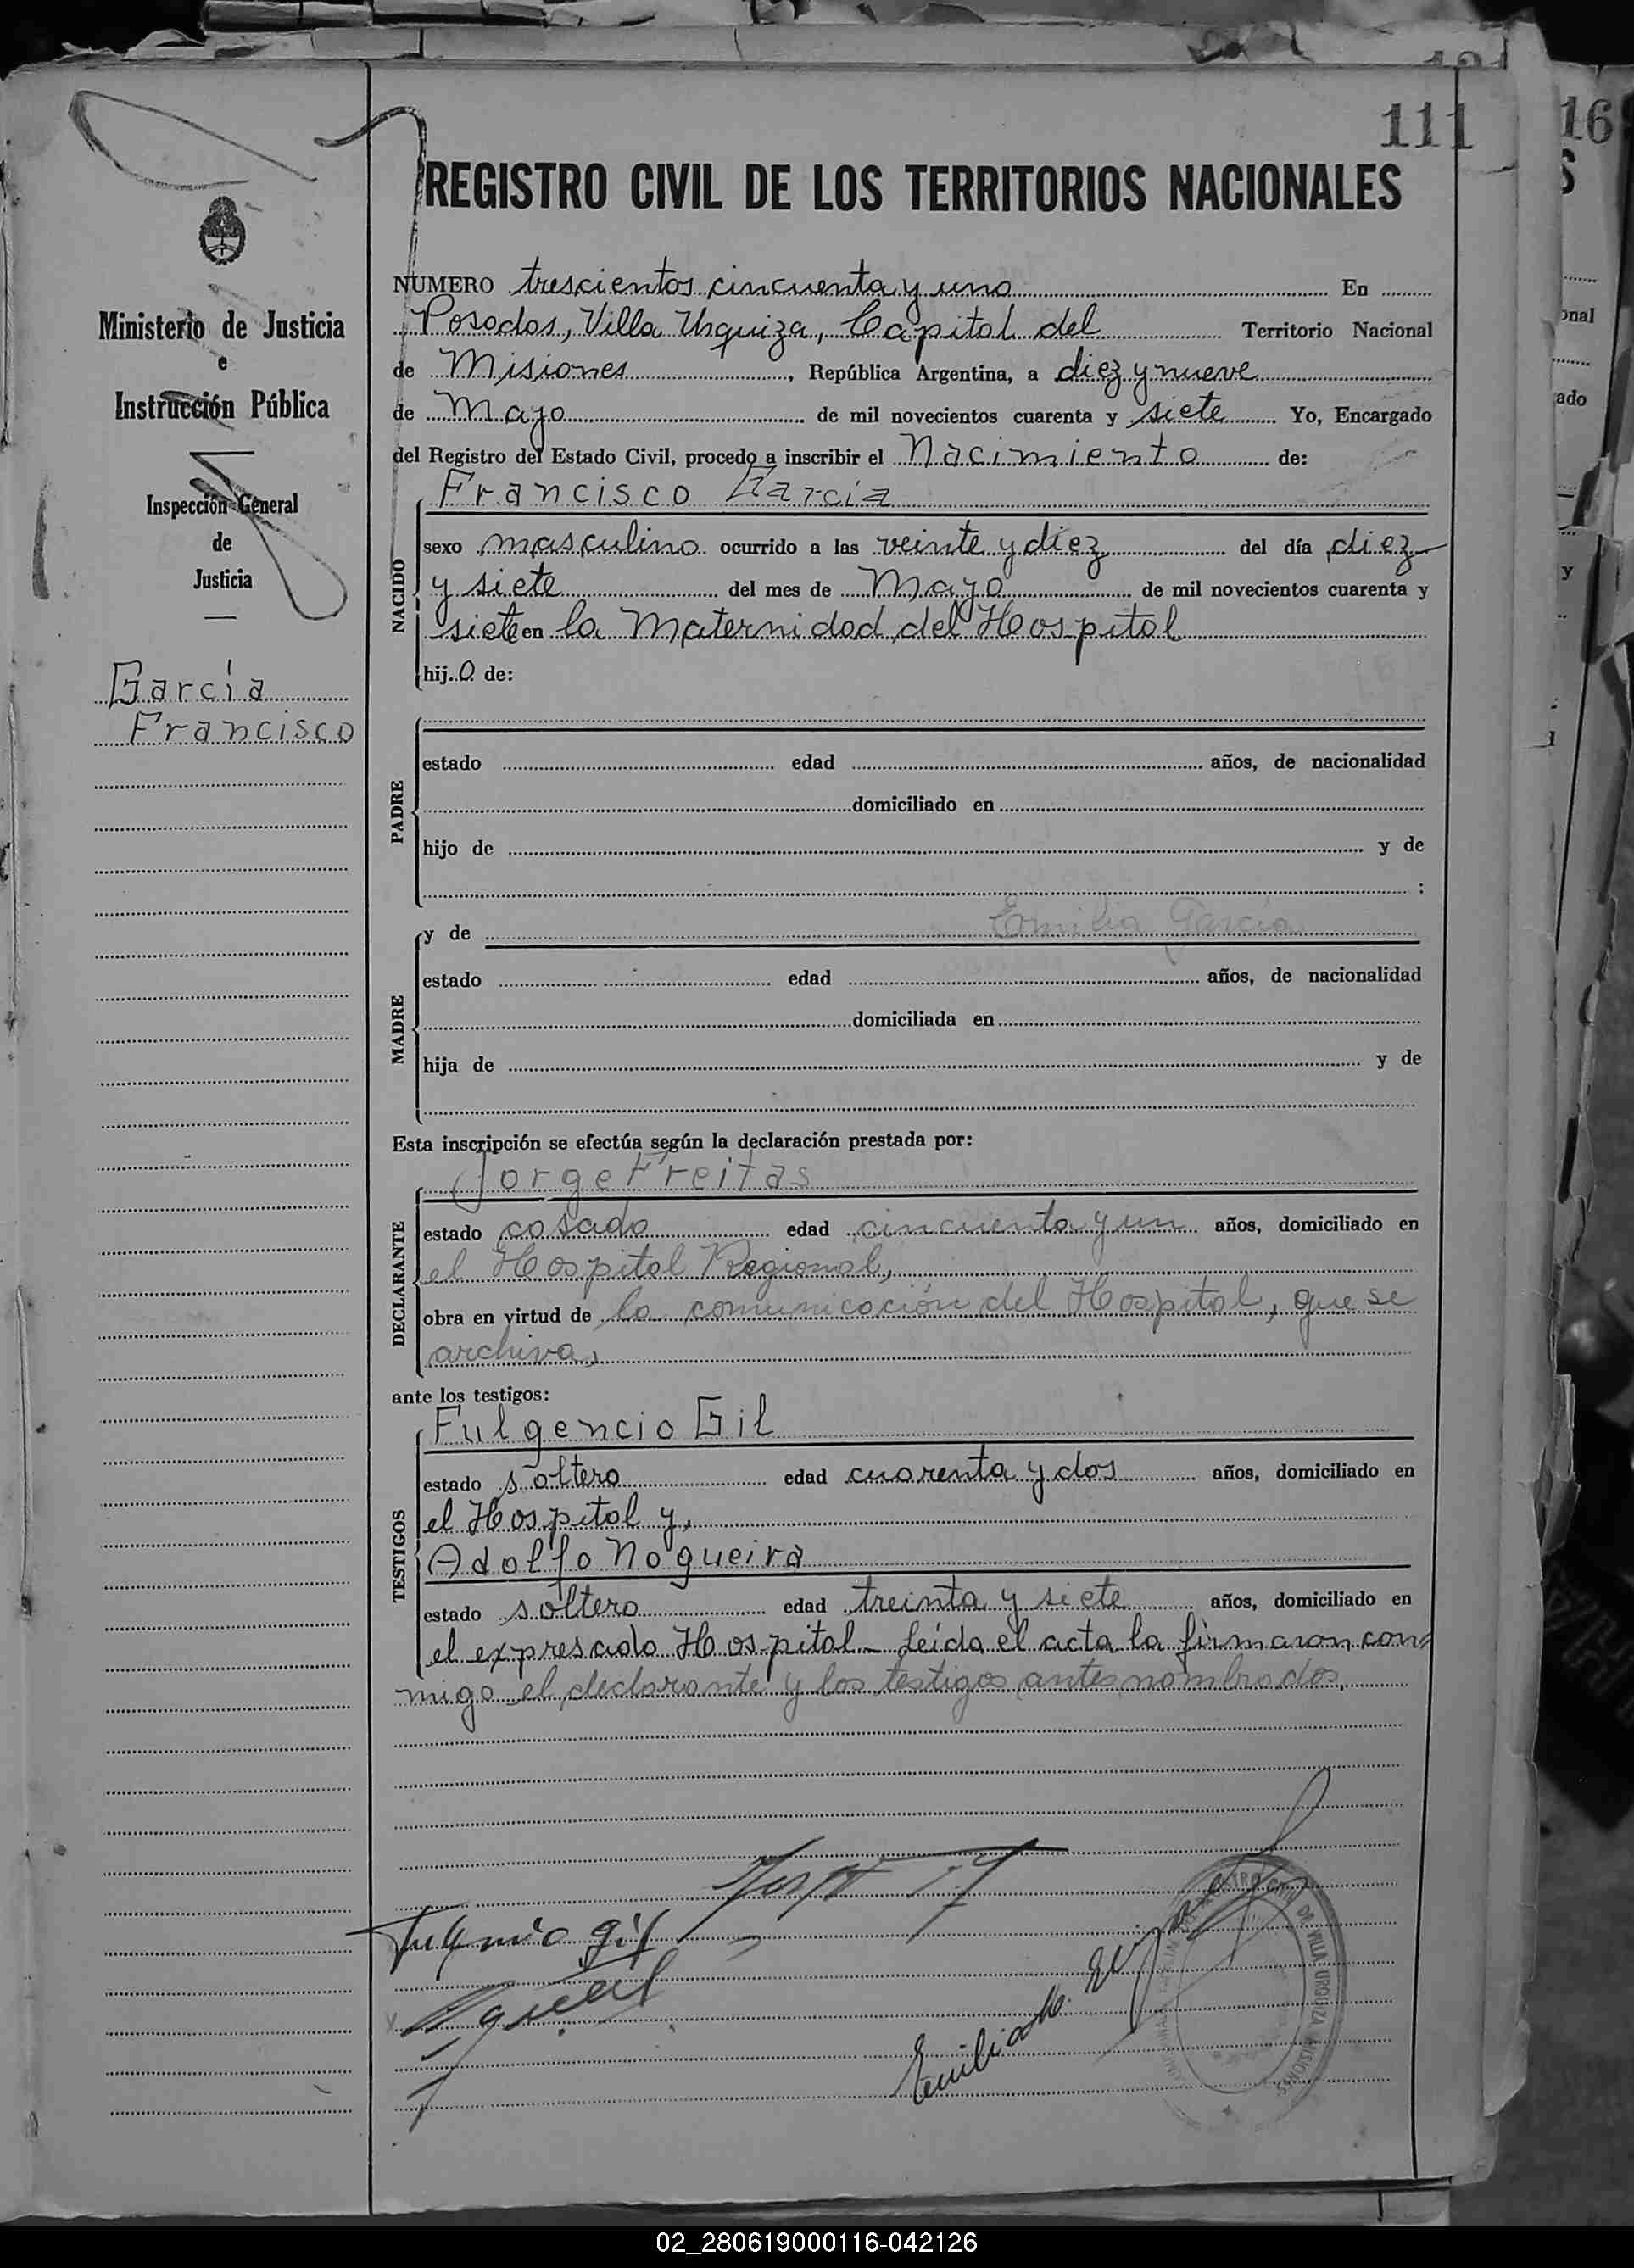 111
16
REGISTRO CIVIL DE LOS TERRITORIOS NACIONALES
Ministerio de Justicia
e
Instrucción Pública
Inspección General
de
Justicia
García
Francisco
NUMERO trescientos cincuenta y uno En
Posadas, Villa Urquiza, Capital del Territorio Nacional
de Misiones, República Argentina, a diez y nueve
de Mayo de mil novecientos cuarenta y siete Yo, Encargado
del Registro del Estado Civil, procedo a inscribir el Nacimiento de:
Francisco García
NACIDO
sexo masculino ocurrido a las veinte y diez del día diez
y siete del mes de Mayo de mil novecientos cuarenta y
siete en la Maternidad del Hospital
hijo de:
PADRE
estado edad años, de nacionalidad
domiciliado en
hijo de y de
;
MADRE
y de Emilia García
estado edad años, de nacionalidad
domiciliada en
hija de y de
Esta inscripción se efectúa según la declaración prestada por:
Jorge Freitas
DECLARANTE
estado casado edad cincuenta y un años, domiciliado en
el Hospital Regional,
obra en virtud de la comunicación del Hospital, que se
archiva,
ante los testigos:
Fulgencio Gil
TESTIGOS
estado soltero edad cuarenta y dos años, domiciliado en
el Hospital y,
Adolfo Nogueira
estado soltero edad treinta y siete años, domiciliado en
el expresado Hospital - Leída el acta la firmaron con=
migo el declarante y los testigos antes nombrados.
gil
REGISTRO CIVIL DE VILLA URQUIZA MISIONES
02_280619000116-042126